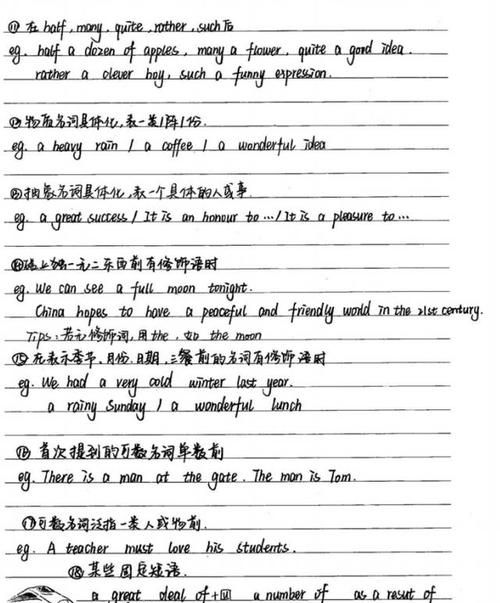 ⑪ 在 half, many, quite, rather, such 后
eg. half a dozen of apples, many a flower, quite a good idea.
rather a clever boy, such a funny expression.
⑫ 物质名词具体化,表一类/阵/份.
eg. a heavy rain / a coffee / a wonderful idea
⑬ 抽象名词具体化,表一个具体的人或事.
eg. a great success / It is an honour to … / It is a pleasure to …
⑭ 世上独一无二东西前有修饰语时
eg. We can see a full moon tonight.
China hopes to have a peaceful and friendly world in the 21st century.
Tips: 若无修饰词,用 the, 如 the moon
⑮ 在表示季节、月份、日期、三餐前的名词有修饰语时
eg. We had a very cold winter last year.
a rainy Sunday / a wonderful lunch
⑯ 首次提到的可数名词单数前
eg. There is a man at the gate. The man is Tom.
⑰ 可数名词泛指一类人或物前.
eg. A teacher must love his students.
⑱ 某些固定短语.
a great deal of + 囗 a number of as a result of